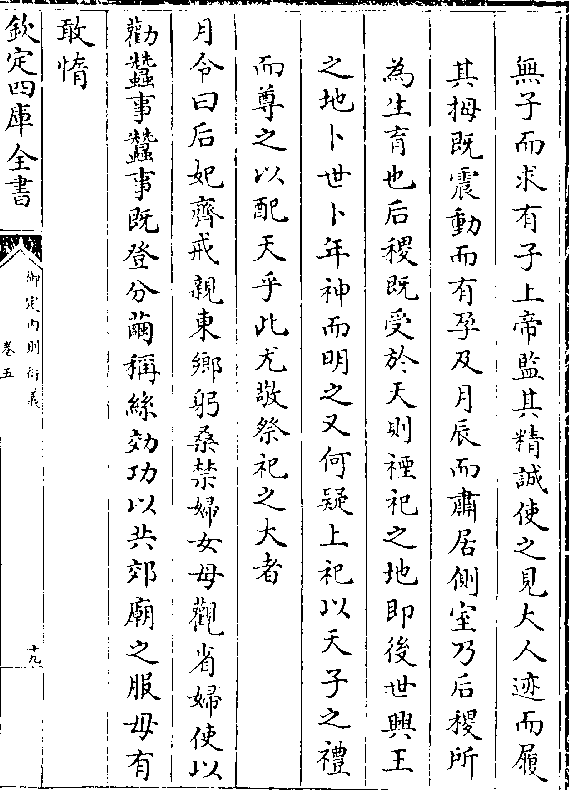 無子而求有子上帝監其精誠使之見大人迹而履
其拇既震動而有孕及月辰而肅居側室乃后稷所
為生育也后稷既受於天則禋祀之地即後世興王
之地卜世卜年神而明之又何疑上祀以天子之禮
而尊之以配天乎此尤敬祭祀之大者
月令曰后妃齊戒親東鄉躬桑禁婦女毋觀省婦使以
勸蠶事蠶事既登分繭稱絲効功以共郊廟之服毋有
敢惰
欽定四庫全書
御定內則衍義
卷五
十九